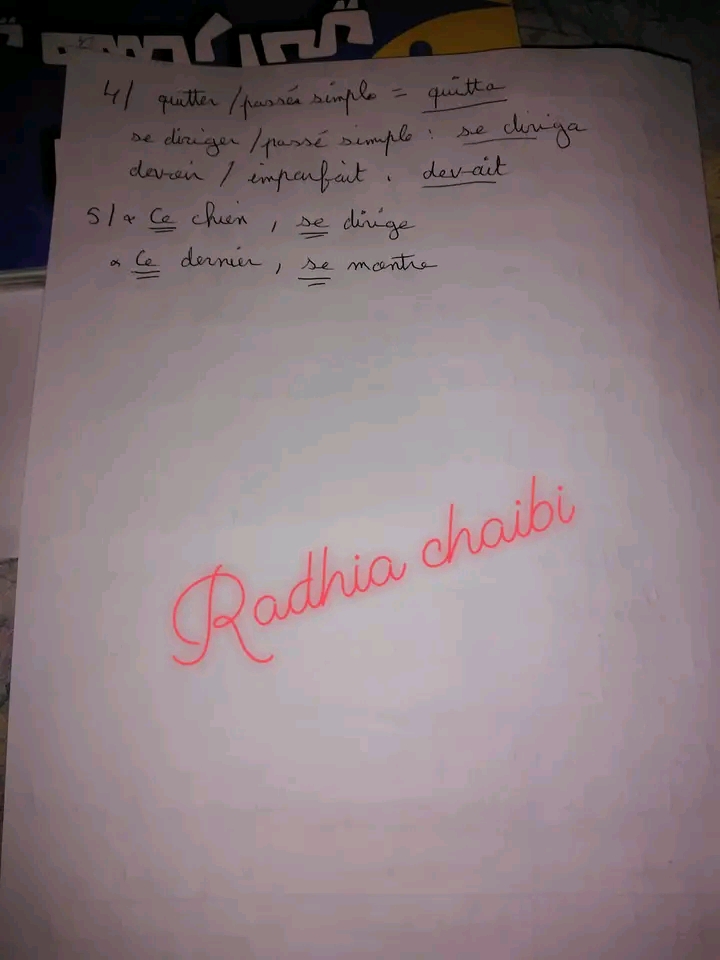 4/ quitter / passé simple = quitta
se diriger / passé simple : se diriga
devoir / imparfait . devait
5/ * Ce chien , se dirige
* Ce dernier , se montre
Radhia chaibi